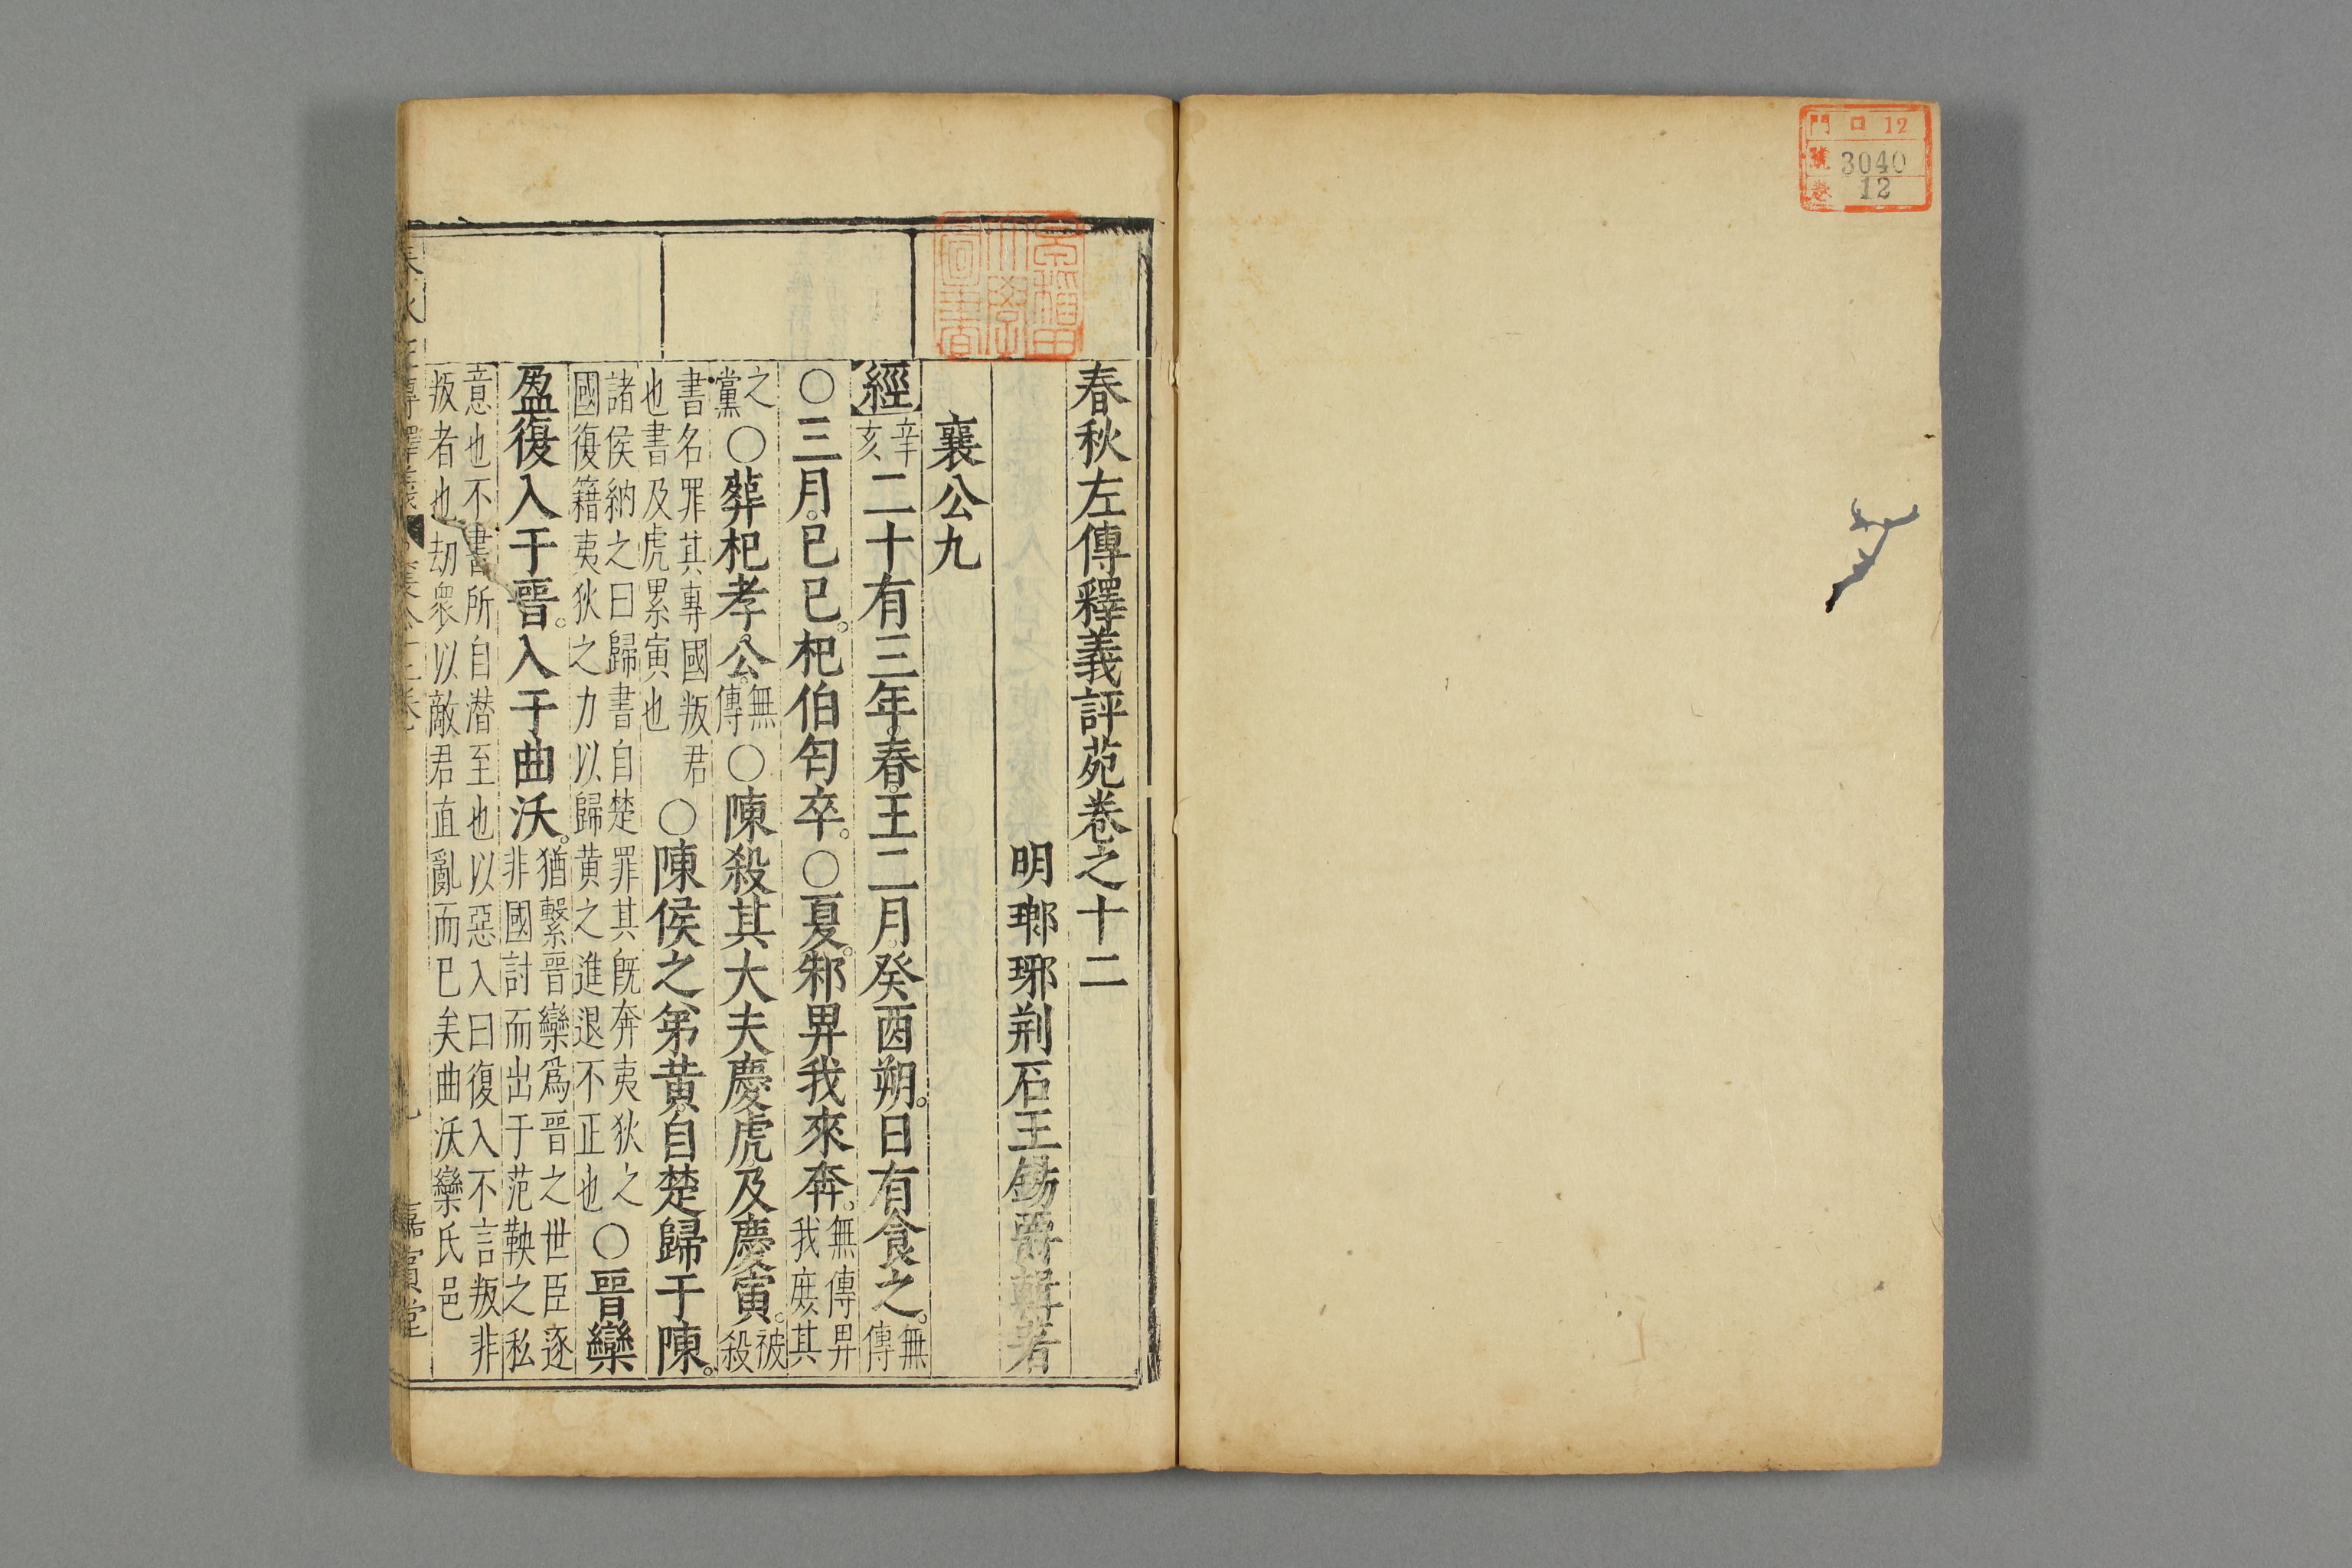 門 口 12
號 3040
卷 12
早稲田大學圖書
春秋左傳釋義評苑卷之十二
明瑯琊荆石王錫爵輯著
襄公九
經辛亥二十有三年。春。王二月癸酉朔。日有食之。無傳
○三月。己巳。杞伯匄卒。○夏。邾畀我來奔。無傳畀我庶其
之黨○葬杞孝公。無傳○陳殺其大夫慶虎及慶寅。被殺
書名罪其專國叛君也書及虎累寅也○陳侯之弟黄自楚歸于陳。
諸侯納之曰歸書自楚罪其既奔夷狄之國復籍夷狄之力以歸黄之進退不正也○晉欒
盈復入于晉。入于曲沃。猶繫晉欒為晉之世臣逐非國討而出于范鞅之私
意也不書所自潜至也以惡入曰復入不言叛非叛者也刧衆以敵君直亂而已矣曲沃欒氏邑
嘉賓堂